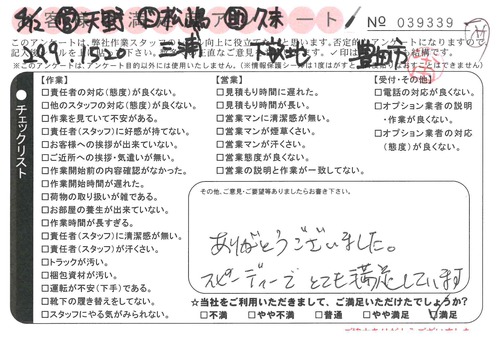 お客様満足アンケート
№ 039339
このアンケートは、弊社作業スタッフの
※このアンケートは、アンケート目的以外には使用いたしません。(※情報保護シールは1度はがすと
チェックリスト
【作業】
□責任者の対応(態度)が良くない。
□他のスタッフの対応(態度)が良くない。
□作業を見ていて不安がある。
□責任者(スタッフ)に好感が持てない。
□お客様への挨拶が出来ていない。
□ご近所への挨拶・気遣いが無い。
□作業開始前の内容確認がなかった。
□作業開始時間が遅れた。
□荷物の取り扱いが雑である。
□お部屋の養生が出来ていない。
□作業時間が長すぎる。
□責任者(スタッフ)に清潔感が無い。
□責任者(スタッフ)が汗くさい。
□トラックが汚い。
□梱包資材が汚い。
□運転が不安(下手)である。
□靴下の履き替えをしてない。
□スタッフにやる気がみられない。
【営業】
□見積もり時間に遅れた。
□見積もり時間が長い。
□営業マンに清潔感が無い。
□営業マンが煙草くさい。
□営業マンが汗くさい。
□営業態度が良くない。
□営業の説明と作業が一致してない。
【受付・その他】
□電話の対応が良くない。
□オプション業者の説明
・作業が良くない。
□オプション業者の対応
(態度)が良くない。
その他、ご意見・ご要望等ありましたらお書き下さい。
ありがとうございました。
スピーディーで とても満足しています
☆当社をご利用いただきまして、ご満足いただけたでしょうか?
□不満 □やや不満 □普通 □やや満足 ☑満足